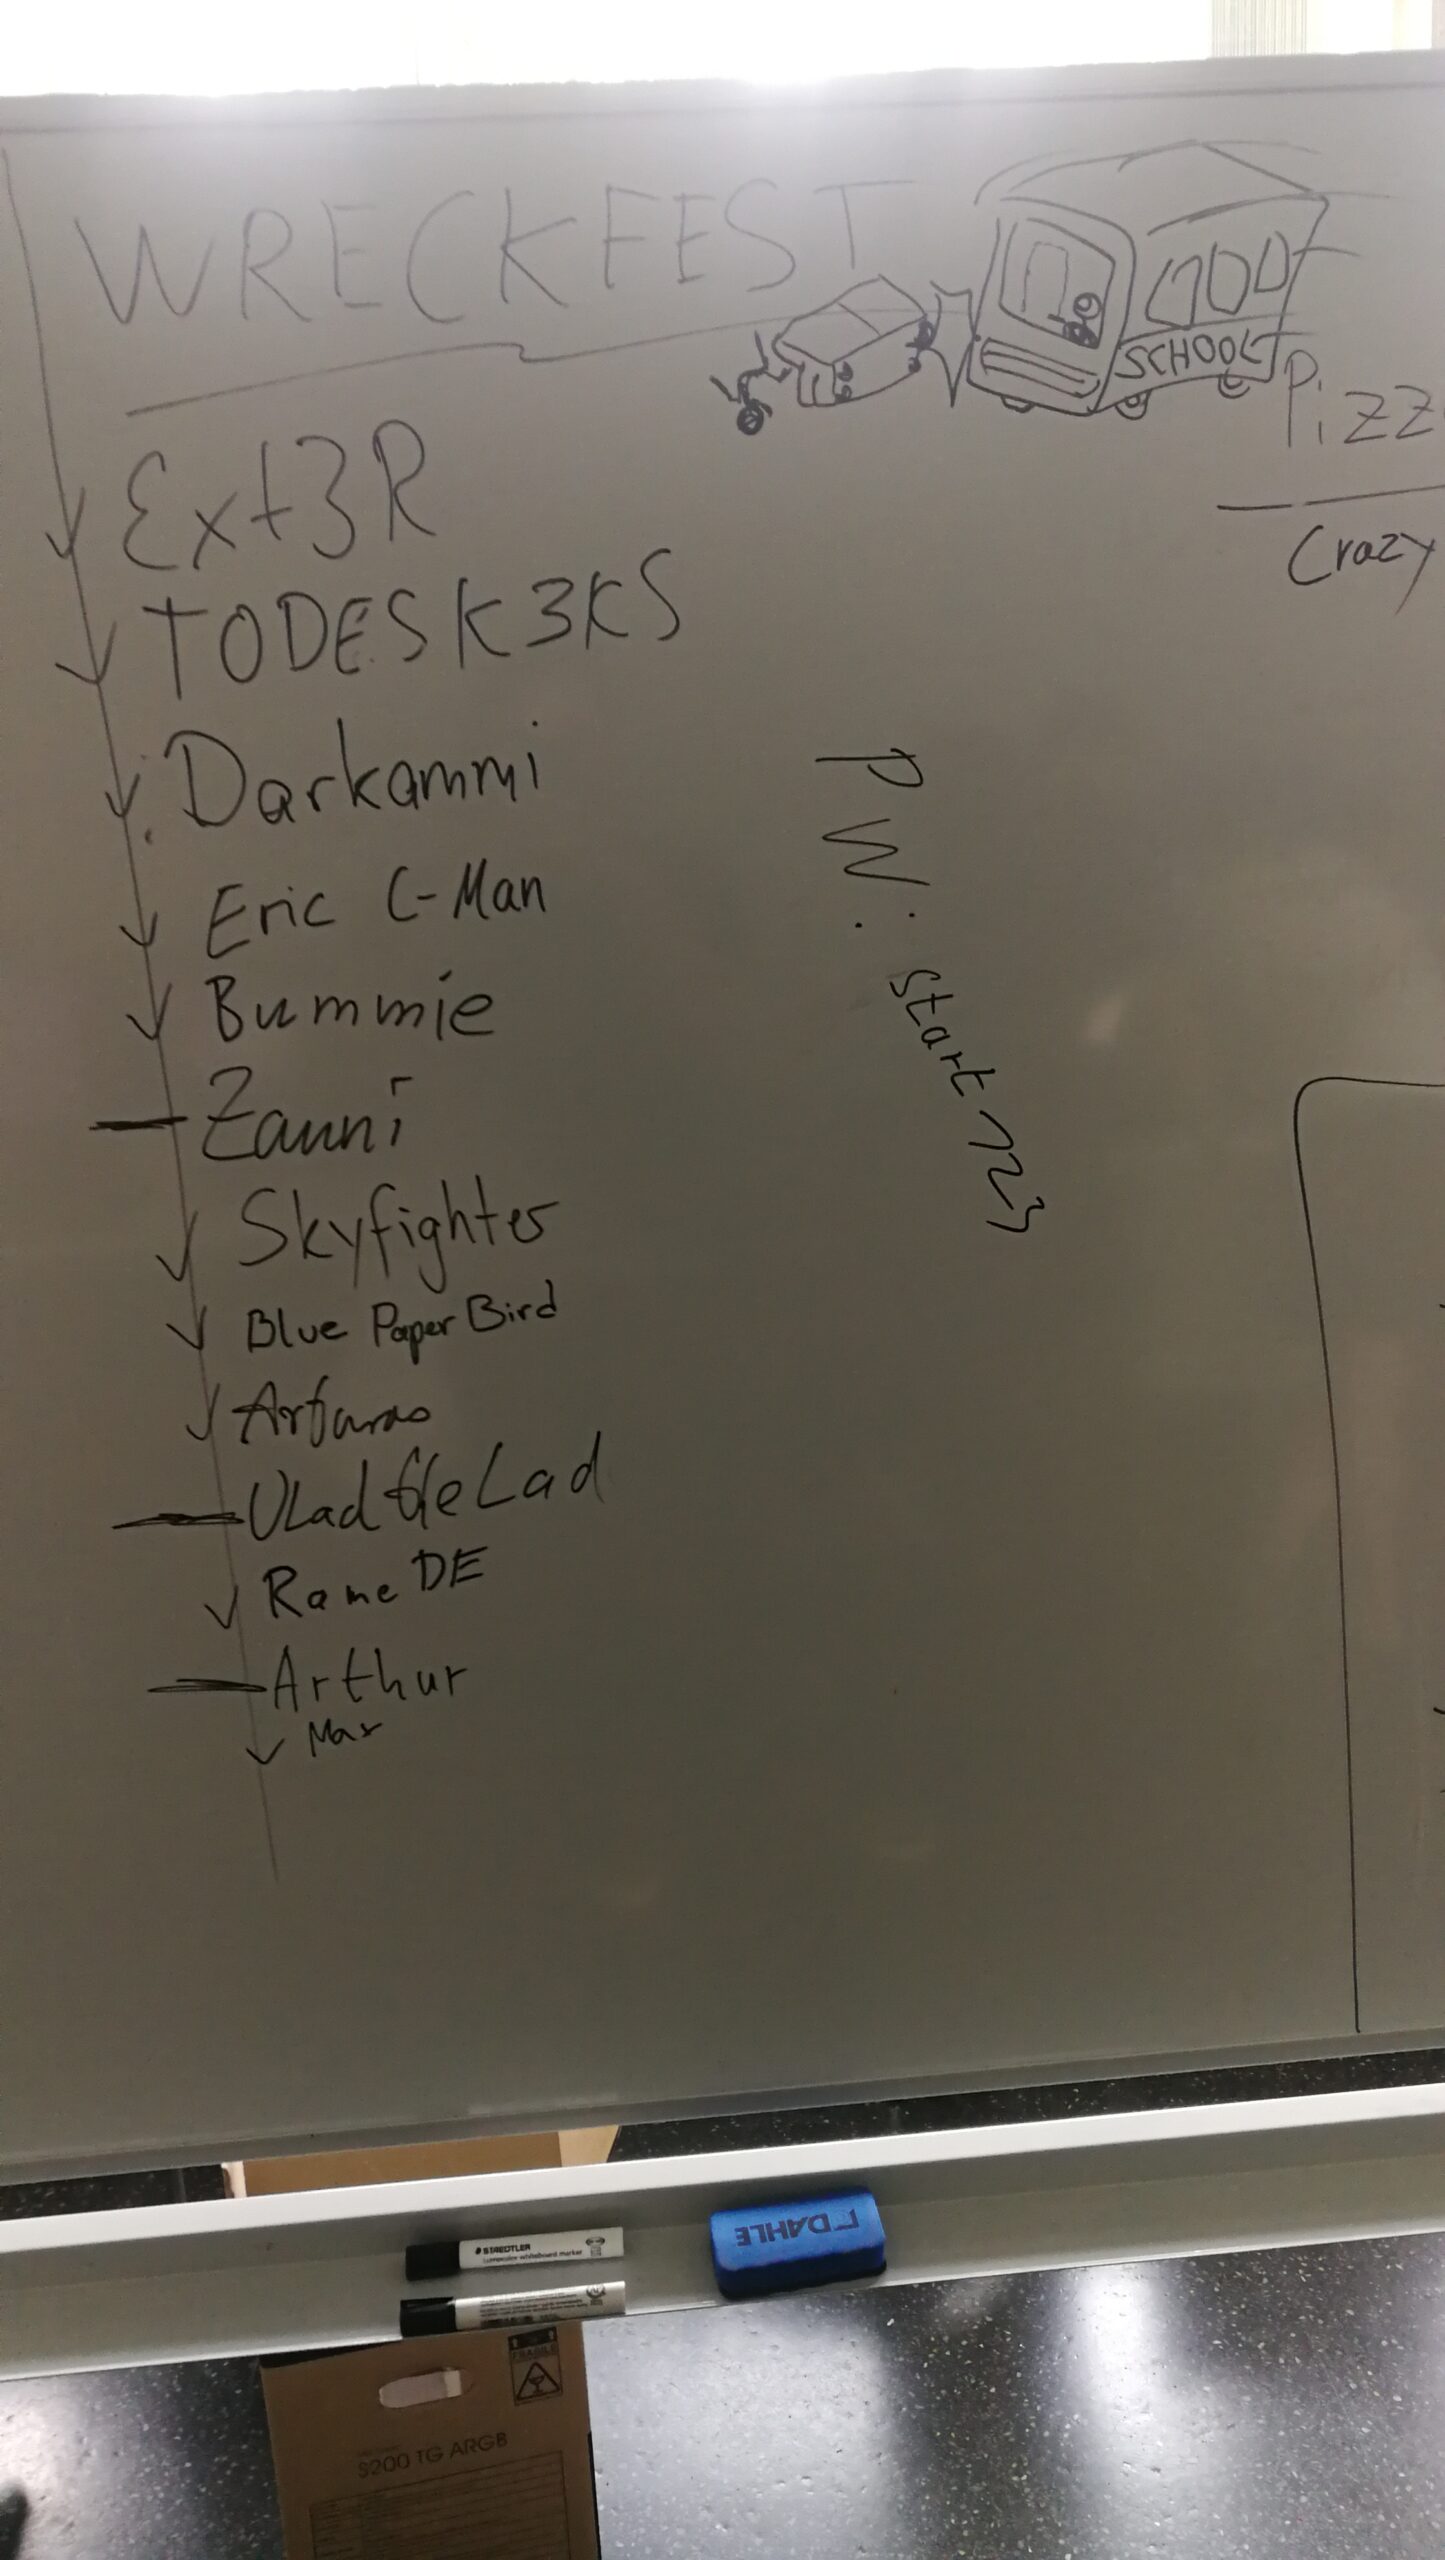 WRECKFEST
SCHOOL
Pizz
Crazy
Ext3R
TODESK3KS
Darkammi
Eric C-Man
Bummie
Zanni
Skyfighter
Blue Paper Bird
Vlad the Lad
Rame DE
Arthur
Max
PW: start123
DAHLE
STAEDTLER
Lumocolor whiteboard marker
FRAGILE
S200 TG ARGB